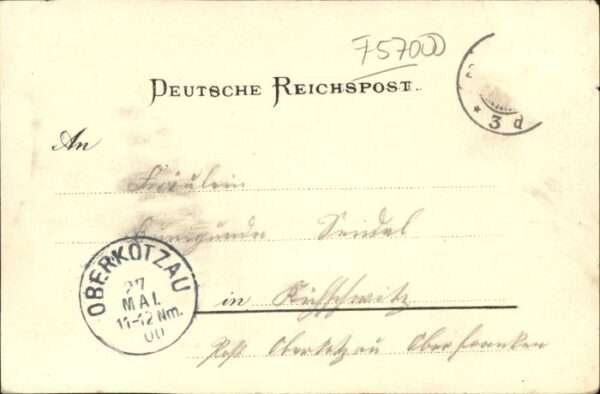 75700
DEUTSCHE REICHSPOST.
* 3 d
An
Fräulein
Kunigunde Seidel
OBERKOTZAU
27
MAI.
11-12 Nm.
00
in
Post Oberkotzau Oberfranken